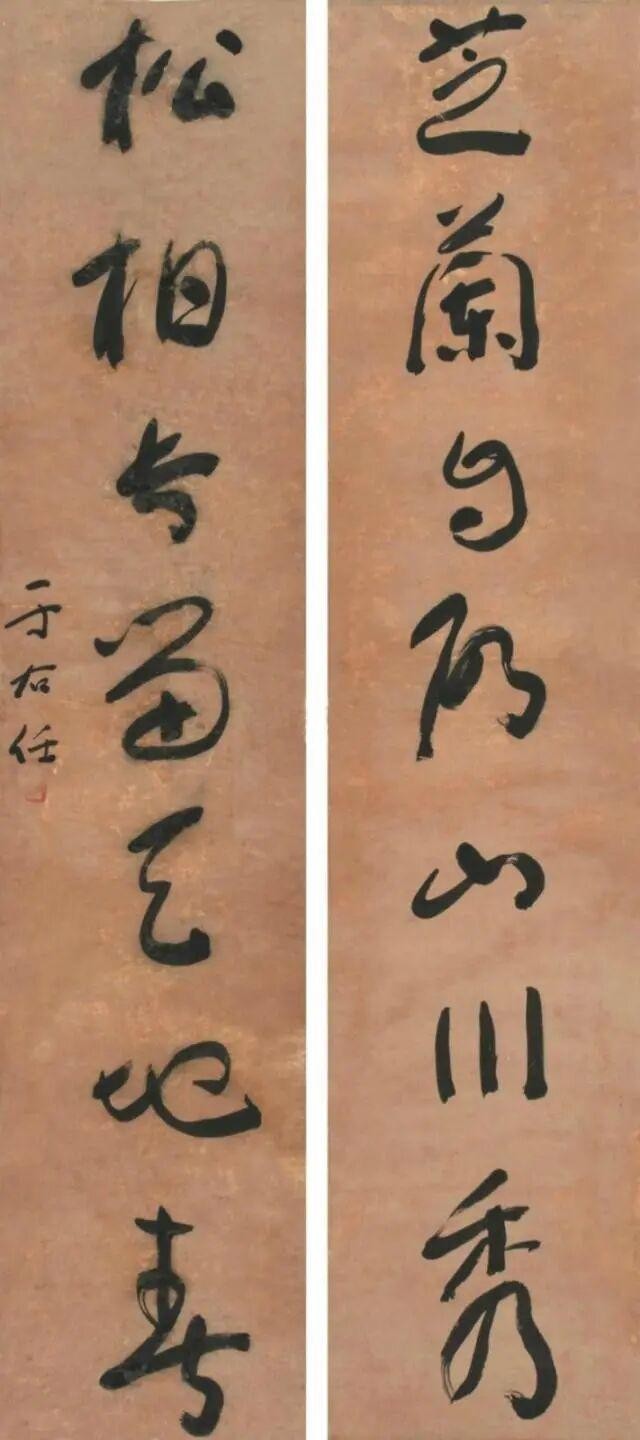 芝蘭山川秀
松柏長留天地春
于右任